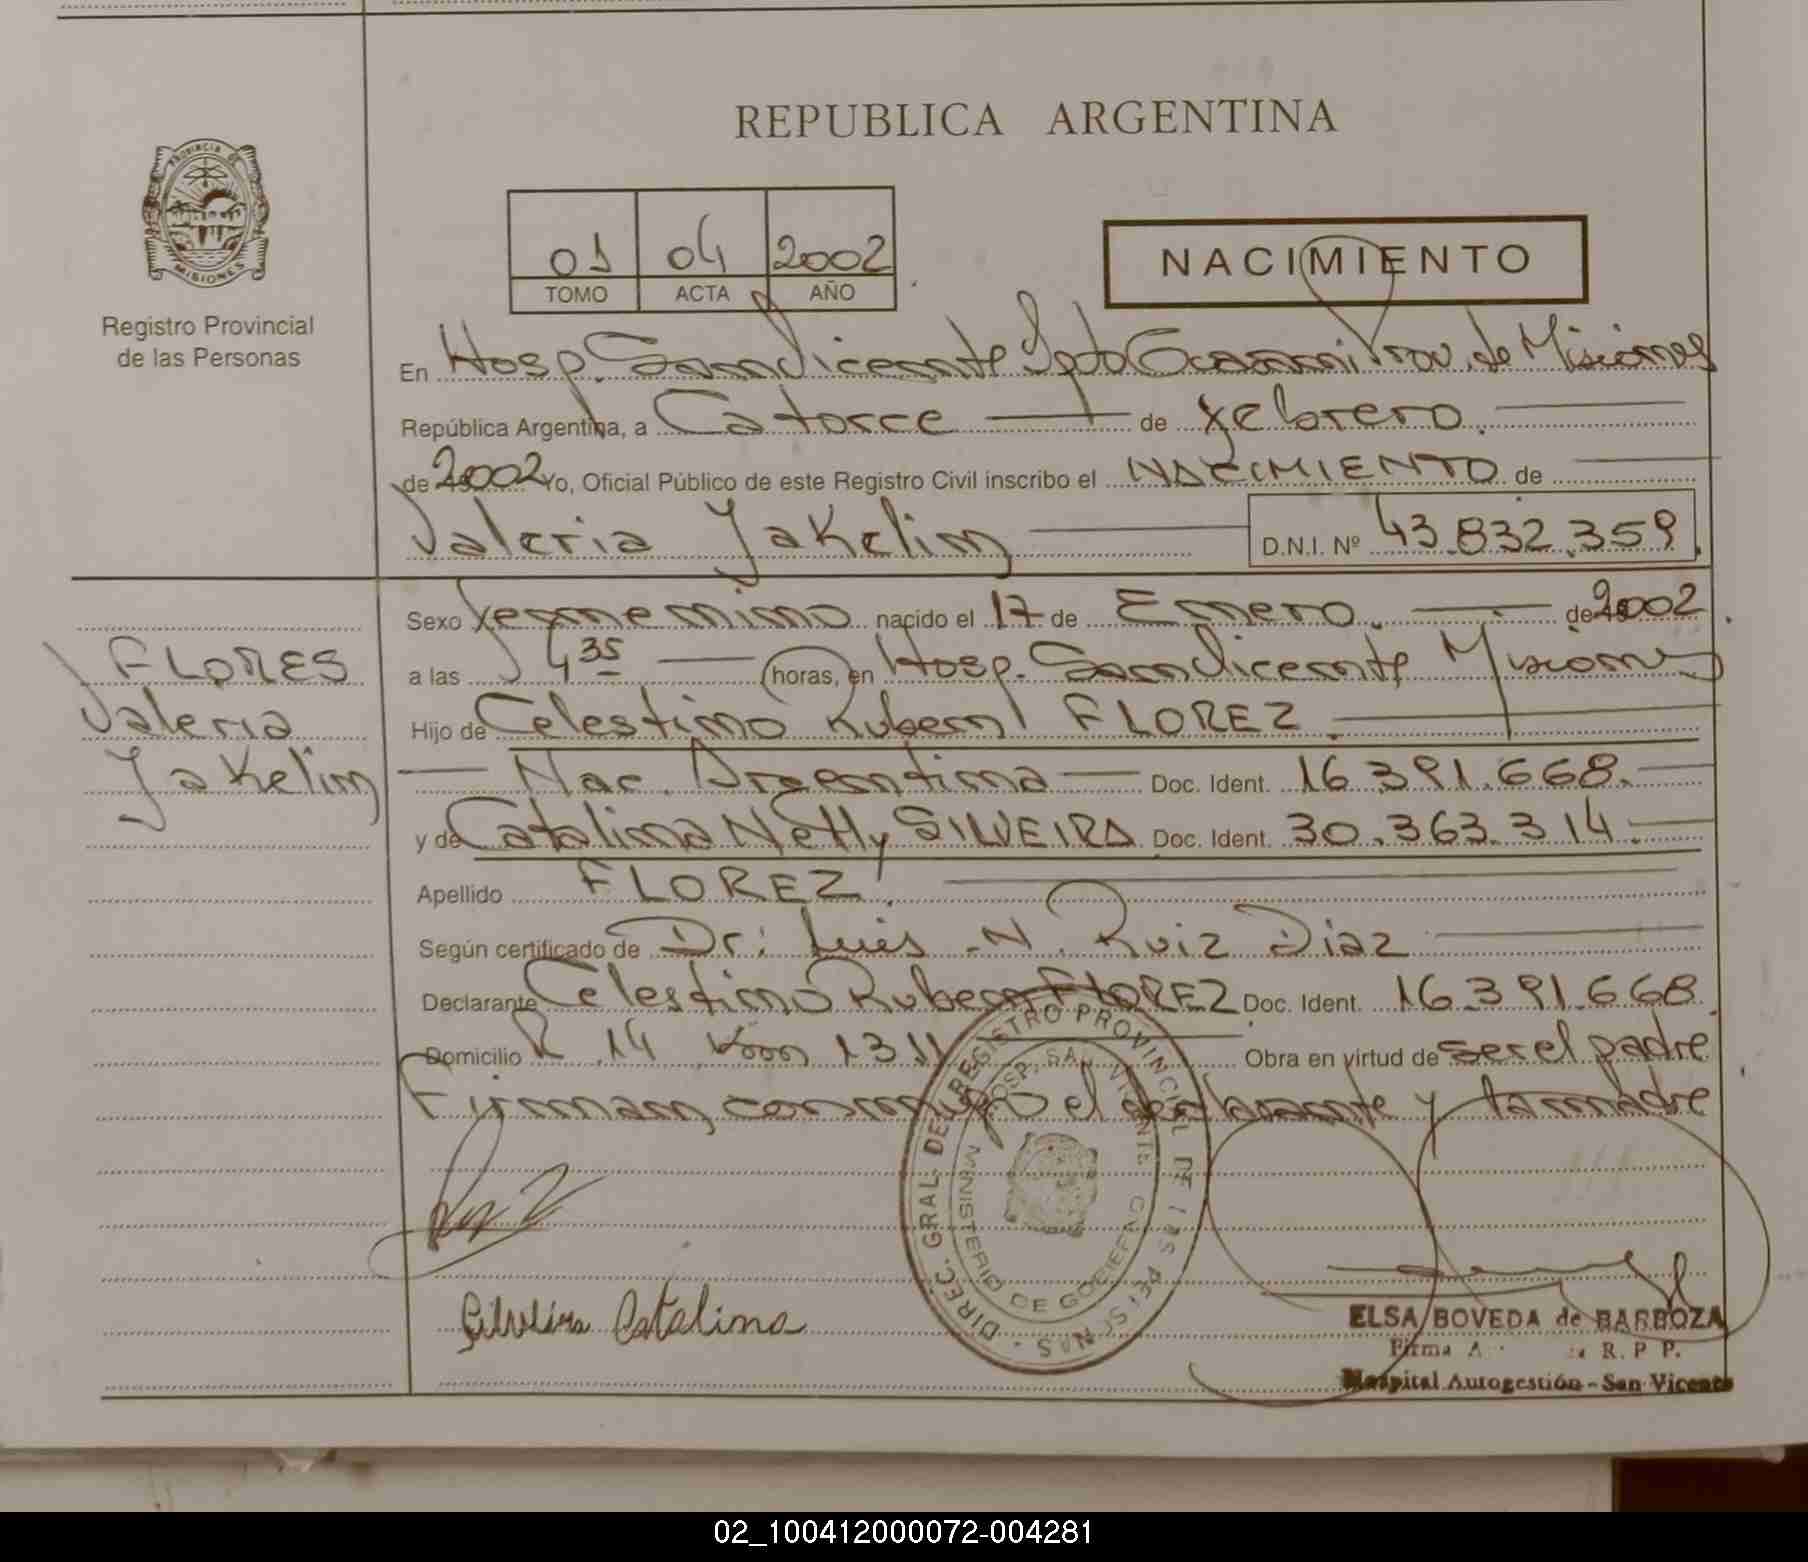 REPUBLICA ARGENTINA
PROVINCIA DE
MISIONES
Registro Provincial
de las Personas
01 04 2002
TOMO ACTA AÑO
NACIMIENTO
En Hosp. San Vicente Dpto Guarani Prov. de Misiones
República Argentina, a Catorce de Febrero.
de 2002 Yo, Oficial Público de este Registro Civil inscribo el NACIMIENTO de
Valeria Jakelin D.N.I. Nº 43.832.359.
Sexo Femenino nacido el 17 de Enero. de 2002
a las 4 35 horas, en Hosp. San Vicente Misiones
Hijo de Celestino Ruben FLOREZ.
Nac. Argentina Doc. Ident. 16.391.668.
y de Catalina Nelly SILVEIRA Doc. Ident. 30.363.314.
Apellido FLOREZ.
Según certificado de Dr: Luis N. Ruiz Diaz
Declarante Celestino Ruben FLOREZ Doc. Ident. 16.391.668
Domicilio R. 14 Km 1311 Obra en virtud de ser el padre
Firman conmigo el declarante y la madre
FLORES
Valeria
Jakelin
DIREC. GRAL. DEL REGISTRO PROVINCIAL DE LAS PERSONAS
HOSP. SAN VICENTE
MINISTERIO DE GOBIERNO
Silveira Catalina
ELSA BOVEDA de BARBOZA
Firma R. P. P.
Hospital Autogestión - San Vicente
02_100412000072-004281